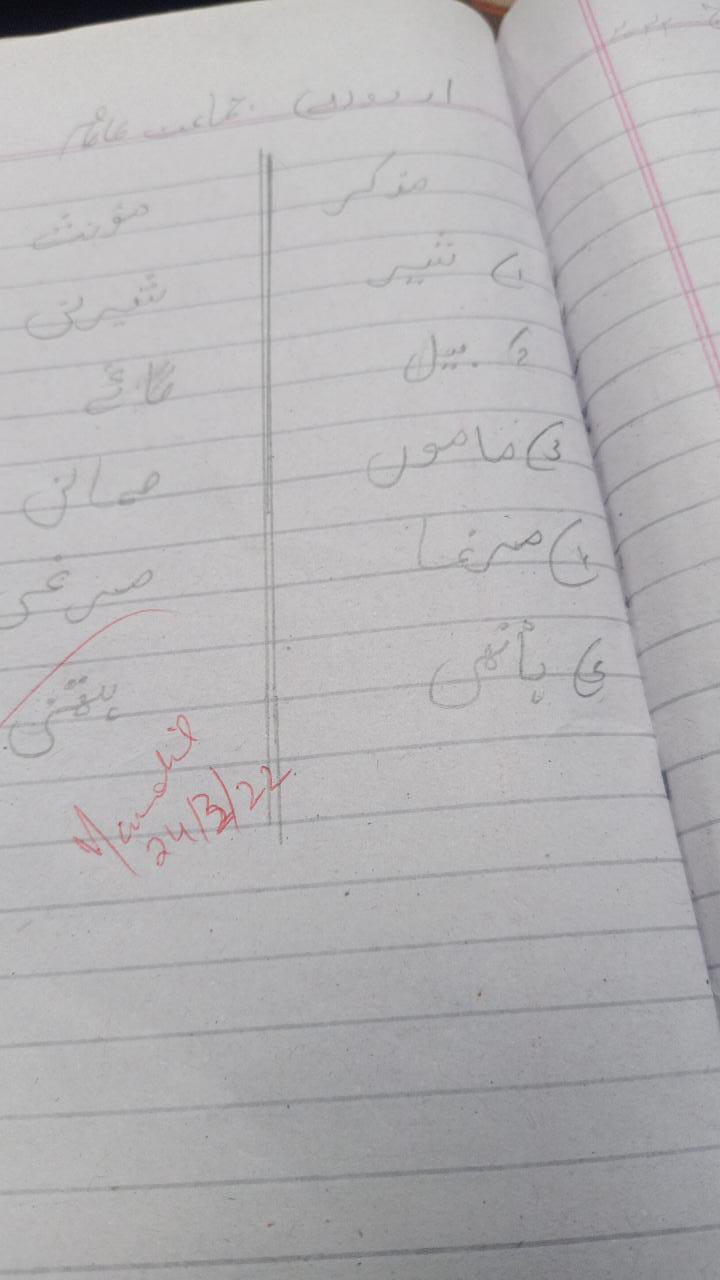 اردو جماعت
مذکر مؤنث
1) شیر شیرنی
2) بیل گائے
3) ماموں ممانی
4) مرغا مرغی
5) ہاتھی ہتھنی
24/3/22